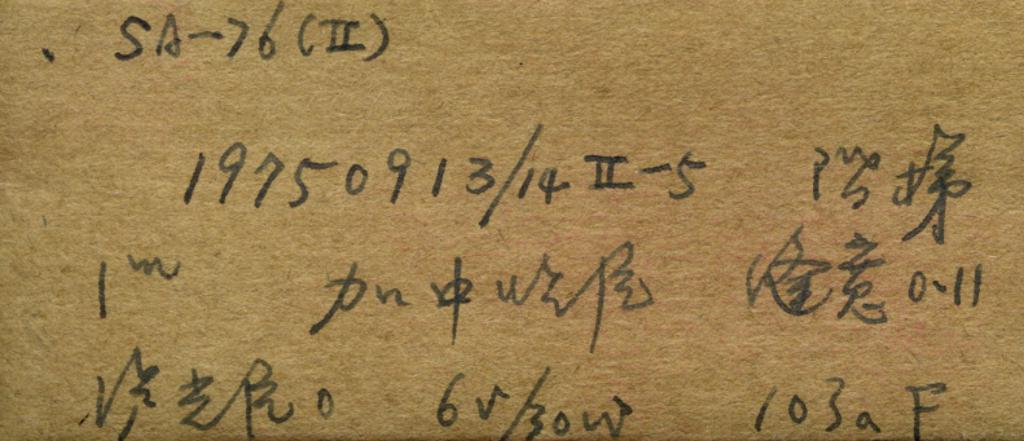 SA-76(II)
19750913/14 II-5 阶梯
1m 加中 缝 0.11
光 0 6V/30W 103aF